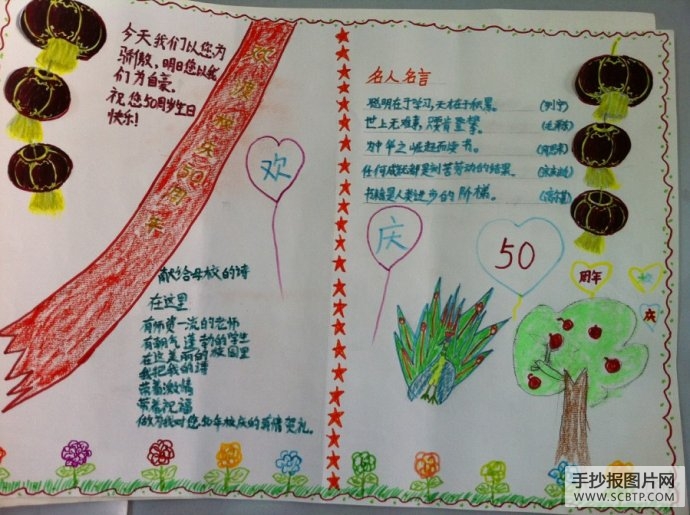 今天我们以您为
骄傲,明日您以我
们为自豪。
祝您50周岁生日
快乐!
欢 庆 50周年
欢
献给母校的诗
在这里
有师资一流的老师
有朝气蓬勃的学生
在这美丽的校园里
我把我的诗
带着激情
带着祝福
做为我对您50年校庆的真情贺礼。
名人名言
聪明在于学习,天才在于积累。
世上无难事,只要肯登攀。
为中华之崛起而读书。
任何成就都是刻苦劳动的结果。
书籍是人类进步的阶梯。
庆
50
周年
校
庆
手抄报图片网
WWW.SCBTP.COM